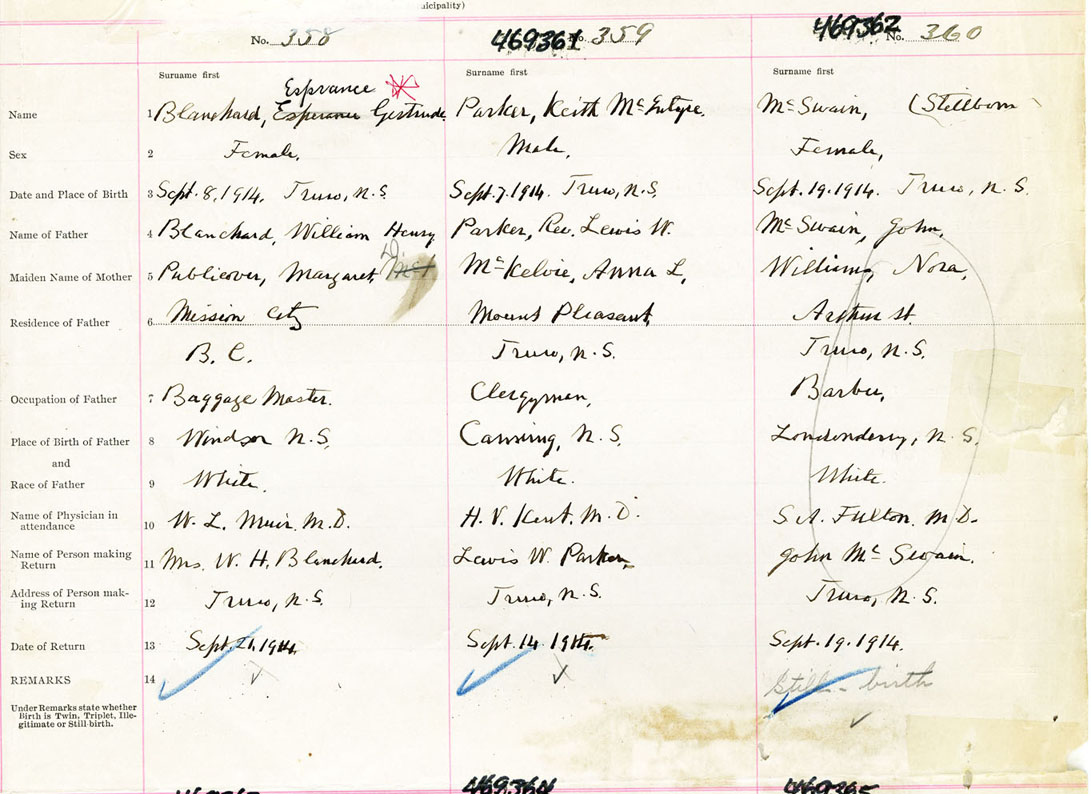 icipality)
No. 358 469361 No. 359 469362 No. 360
Surname first Surname first Surname first
Esprvance
Name 1 Blanchard, Esperance Gertrude Parker, Keith McEntyre. McSwain, (Stillborn
Sex 2 Female, Male, Female,
Date and Place of Birth 3 Sept. 8, 1914. Truro, N.S. Sept. 7. 1914. Truro, N.S. Sept. 19. 1914. Truro, N.S.
Name of Father 4 Blanchard, William Henry Parker, Rev. Lewis W. McSwain, John,
Maiden Name of Mother 5 Publicover, Margaret McKelvie, Anna L, Williams, Nora,
Residence of Father 6 Mission City Mount Pleasant, Arthur St.
B. C. Truro, N.S. Truro, N.S.
Occupation of Father 7 Baggage Master. Clergyman, Barber,
Place of Birth of Father 8 Windsor N.S. Canning, N.S. Londonderry, N.S.
and
Race of Father 9 White. White. White.
Name of Physician in
attendance 10 W. L. Muir, M.D. H. V. Kent, M.D. S A. Fulton, M.D.
Name of Person making
Return 11 Mrs. W. H. Blanchard. Lewis W. Parker, John McSwain.
Address of Person mak-
ing Return 12 Truro, N.S. Truro, N.S. Truro, N.S.
Date of Return 13 Sept. 21, 1914. Sept. 14. 1914. Sept. 19. 1914.
REMARKS 14 Still-birth
Under Remarks state whether
Birth is Twin, Triplet, Ille-
gitimate or Still-birth.
469364 469365